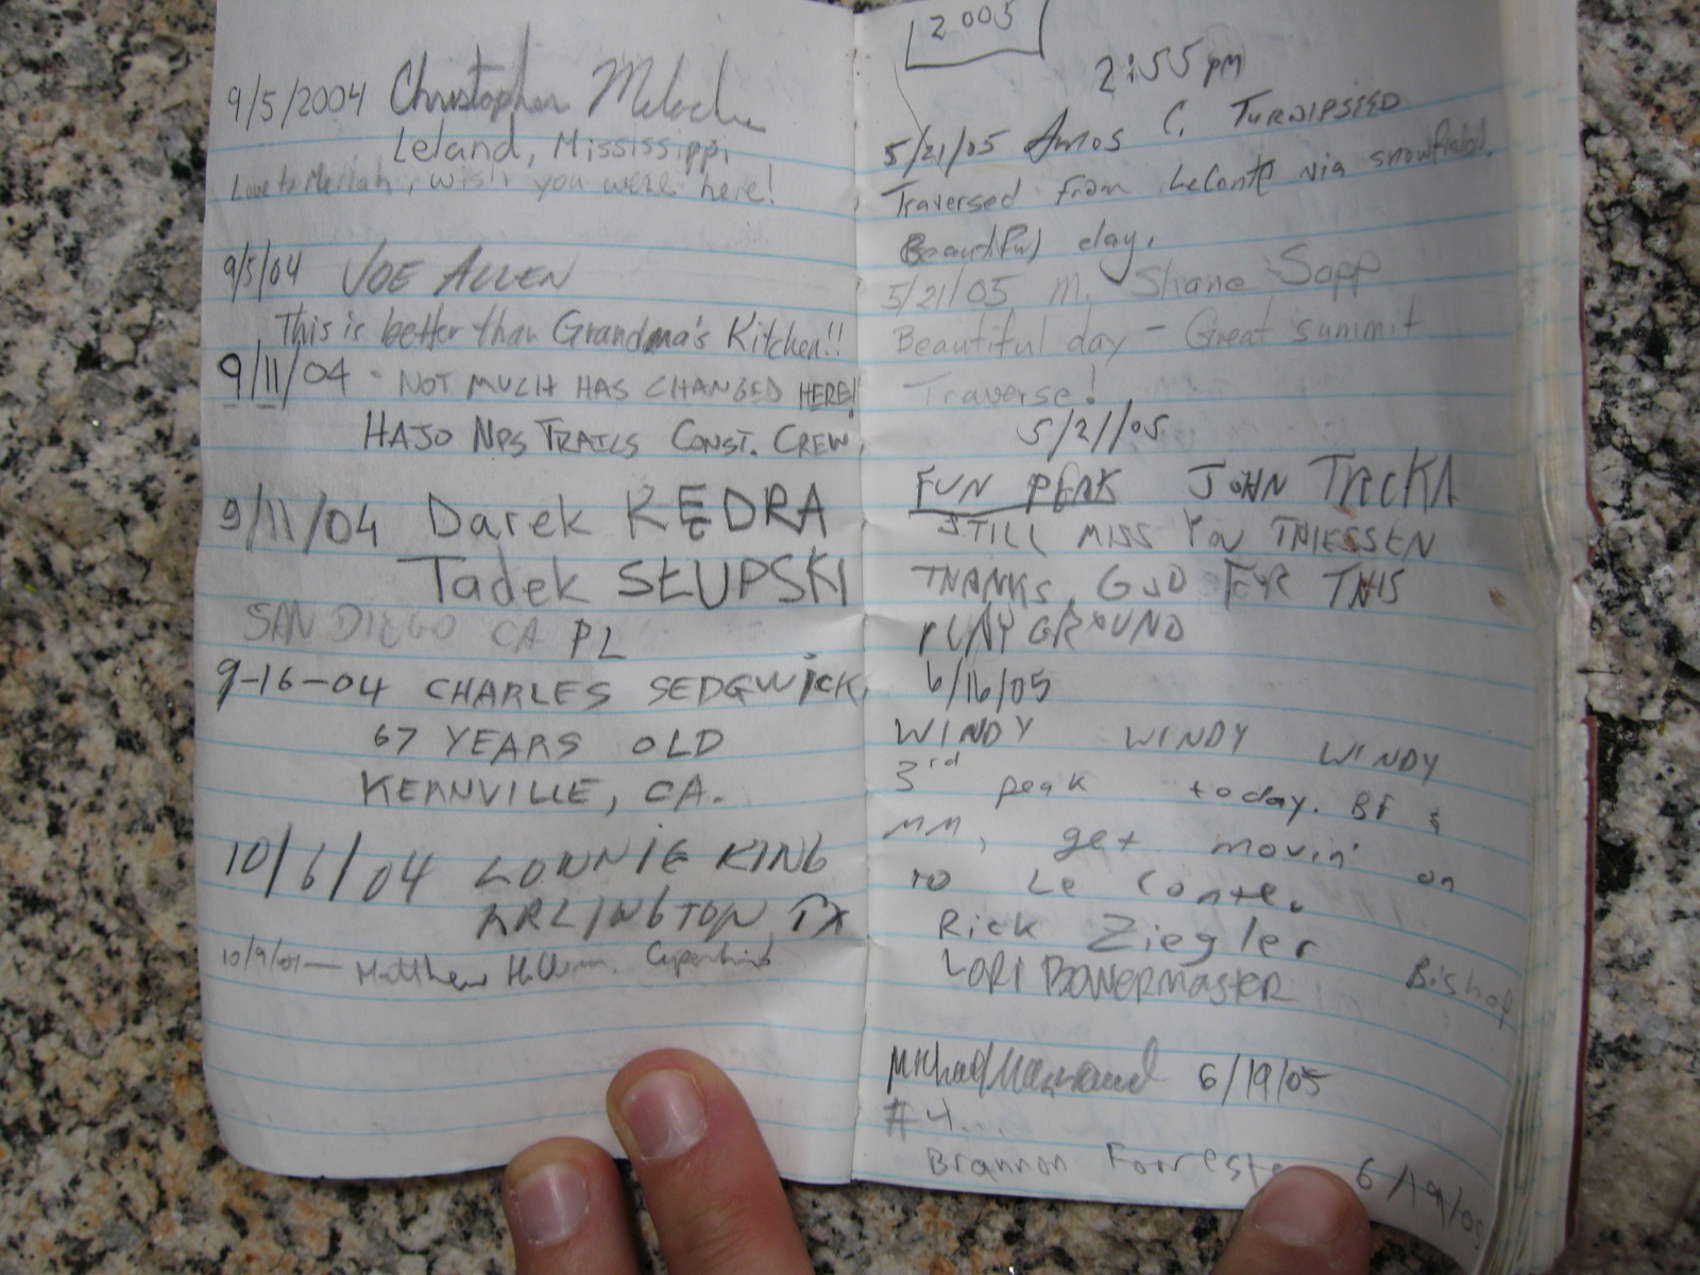 9/5/2004 Christopher
Leland, Mississippi
Love to, wish you were here!
9/5/04 JOE ALLEN
This is better than Grandma's Kitchen!!
9/11/04 - NOT MUCH HAS CHANGED HERE!
HAJO NPS TRAILS CONST. CREW
9/11/04 Darek KĘDRA
Tadek SŁUPSKI
SAN DIEGO CA PL
9-16-04 CHARLES SEDGWICK,
67 YEARS OLD
KERNVILLE, CA.
10/6/04 LONNIE KING
ARLINGTON TX
Matthew
2005
2:55 pm
5/21/05 Amos C. TURNIPSEED
Traversed from LeConte via snowfield.
Beautiful day.
5/21/05 M. Shane Sapp
Beautiful day - Great summit
Traverse!
5/21/05
FUN PEAK JOHN
STILL MISS YOU THIESSEN
THANKS GOD FOR THIS
PLAY GROUND
6/16/05
WINDY WINDY WINDY
3rd peak today. BF &
MM, get movin' on
to Le Conte.
Rick Ziegler
LORI BOWERMASTER Bishop
Michael 6/19/05
#4...
Brannon Forreste 6/19/05